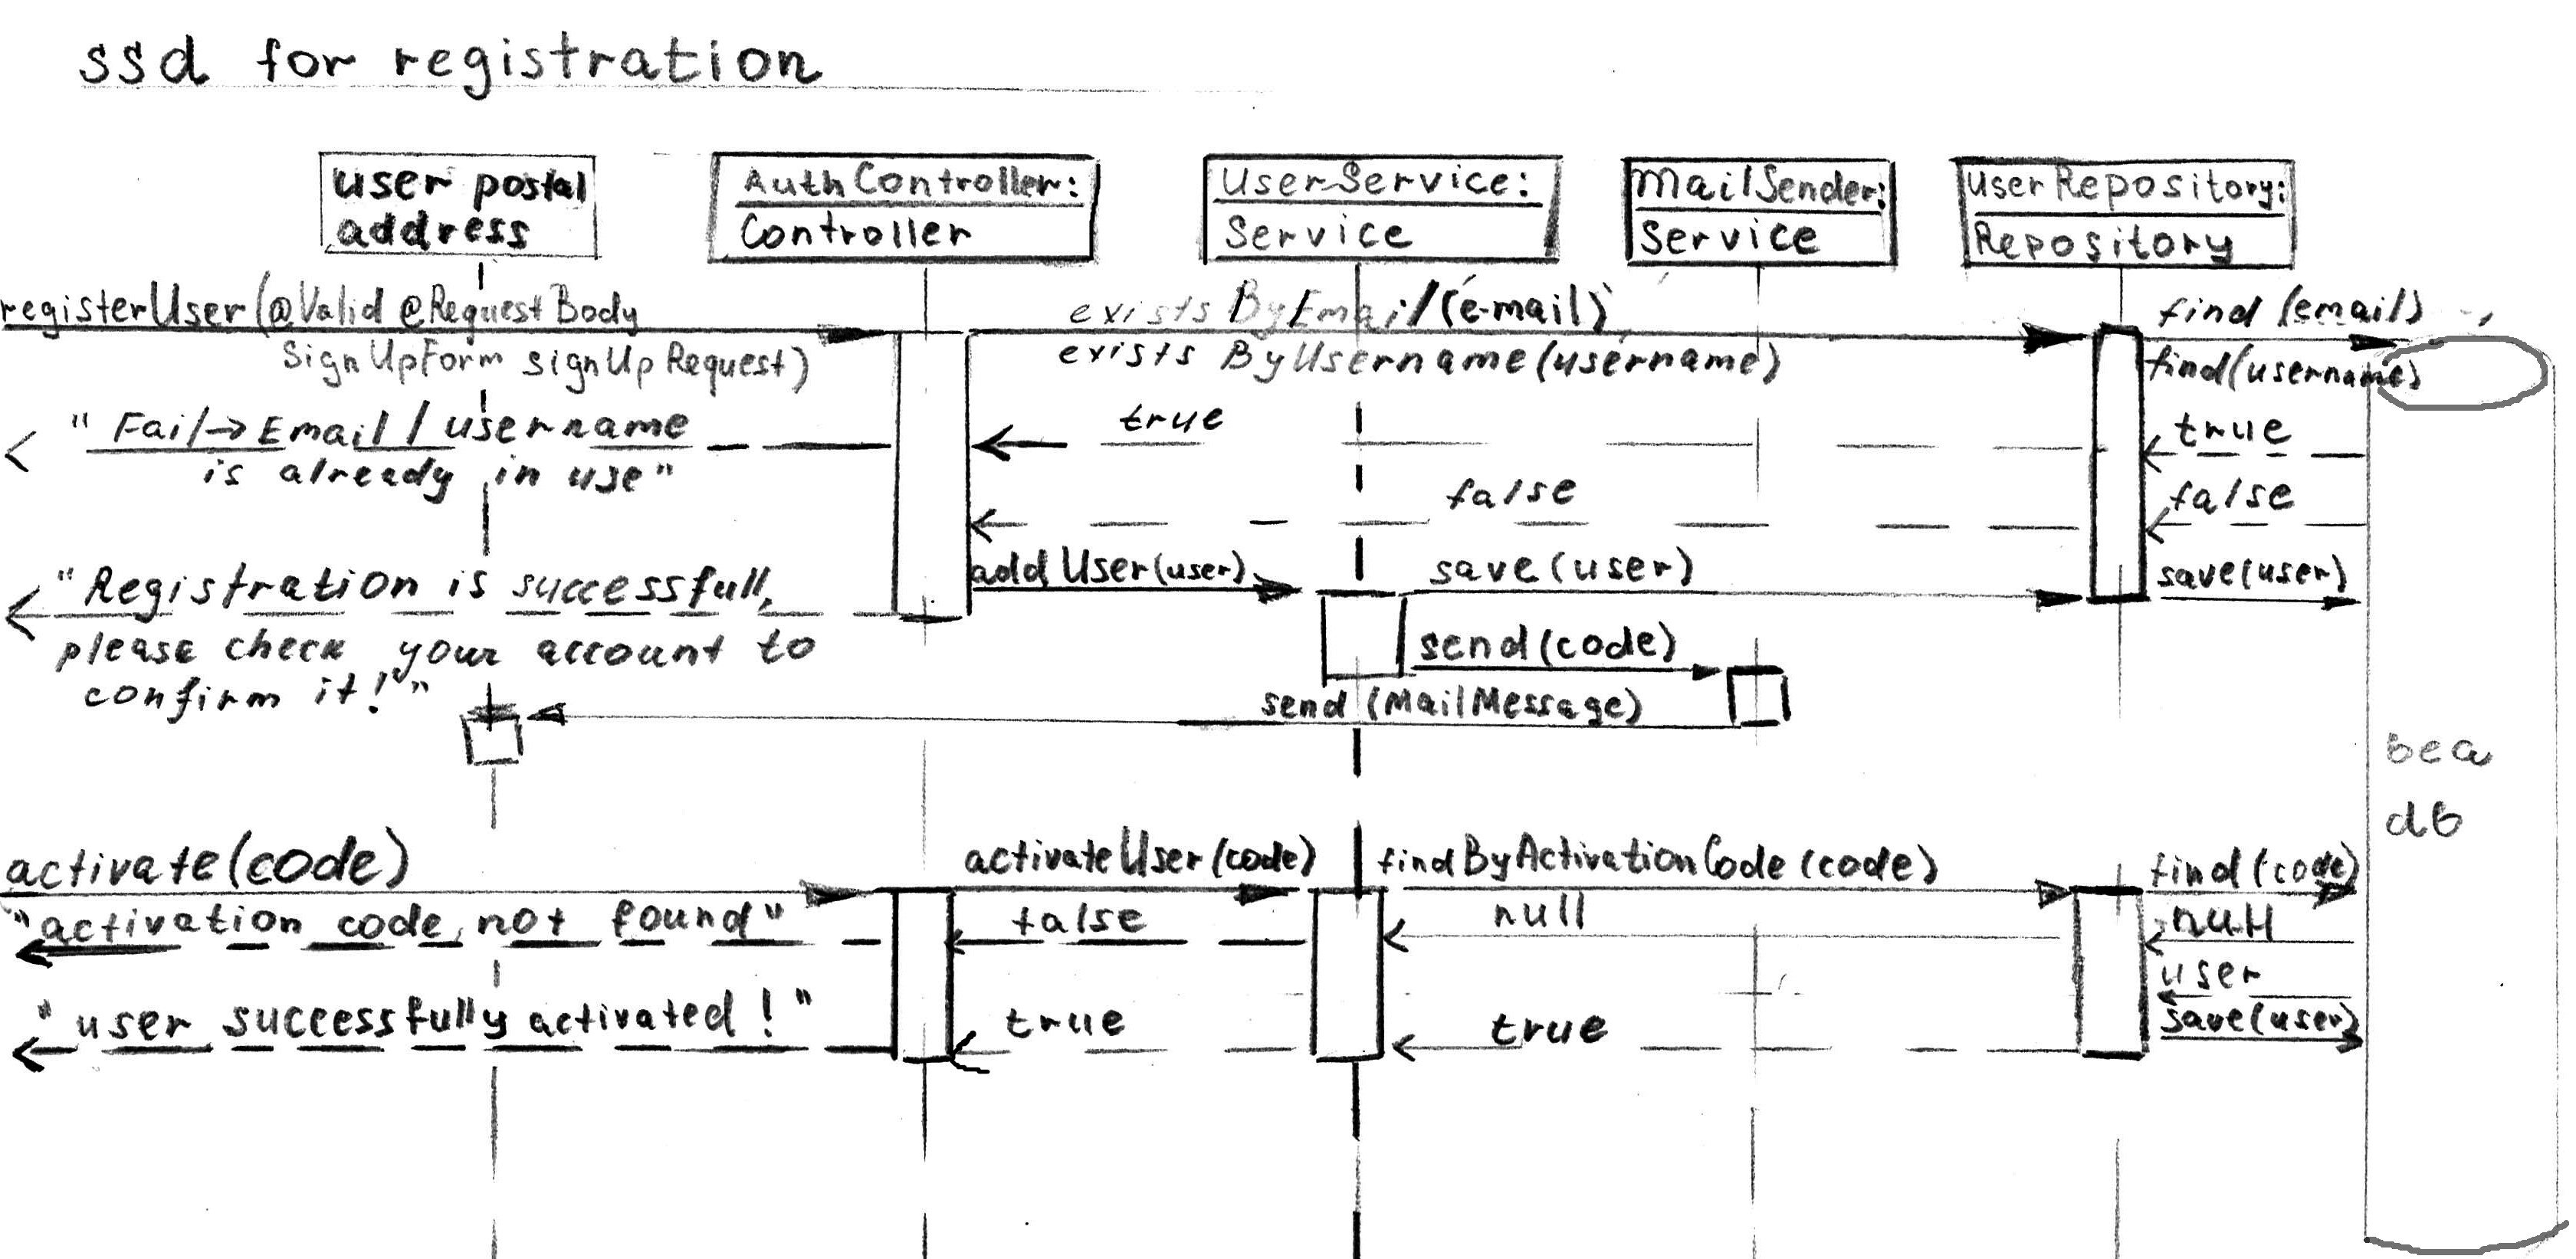 ssd for registration
user postal
address
AuthController:
Controller
UserService:
Service
MailSender:
Service
UserRepository:
Repository
registerUser(@Valid @RequestBody
SignUpForm signUpRequest)
existsByEmail(e-mail)
existsByUsername(username)
find (email)
find(username)
"Fail→Email/username
is already in use"
true
true
false
false
"Registration is successfull,
please check your account to
confirm it!"
addUser(user)
save(user)
save(user)
send(code)
send (MailMessage)
bea
db
activate(code)
activateUser(code)
findByActivationCode(code)
find(code)
"activation code not found"
false
null
null
user
"user successfully activated!"
true
true
save(user)